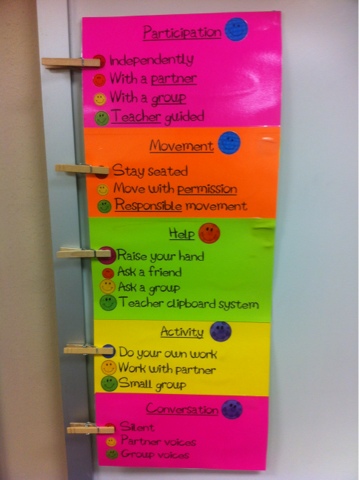 Participation
Independently
With a partner
With a group
Teacher guided
Movement
Stay seated
Move with permission
Responsible movement
Help
Raise your hand
Ask a friend
Ask a group
Teacher clipboard system
Activity
Do your own work
Work with partner
Small group
Conversation
Silent
Partner voices
Group voices